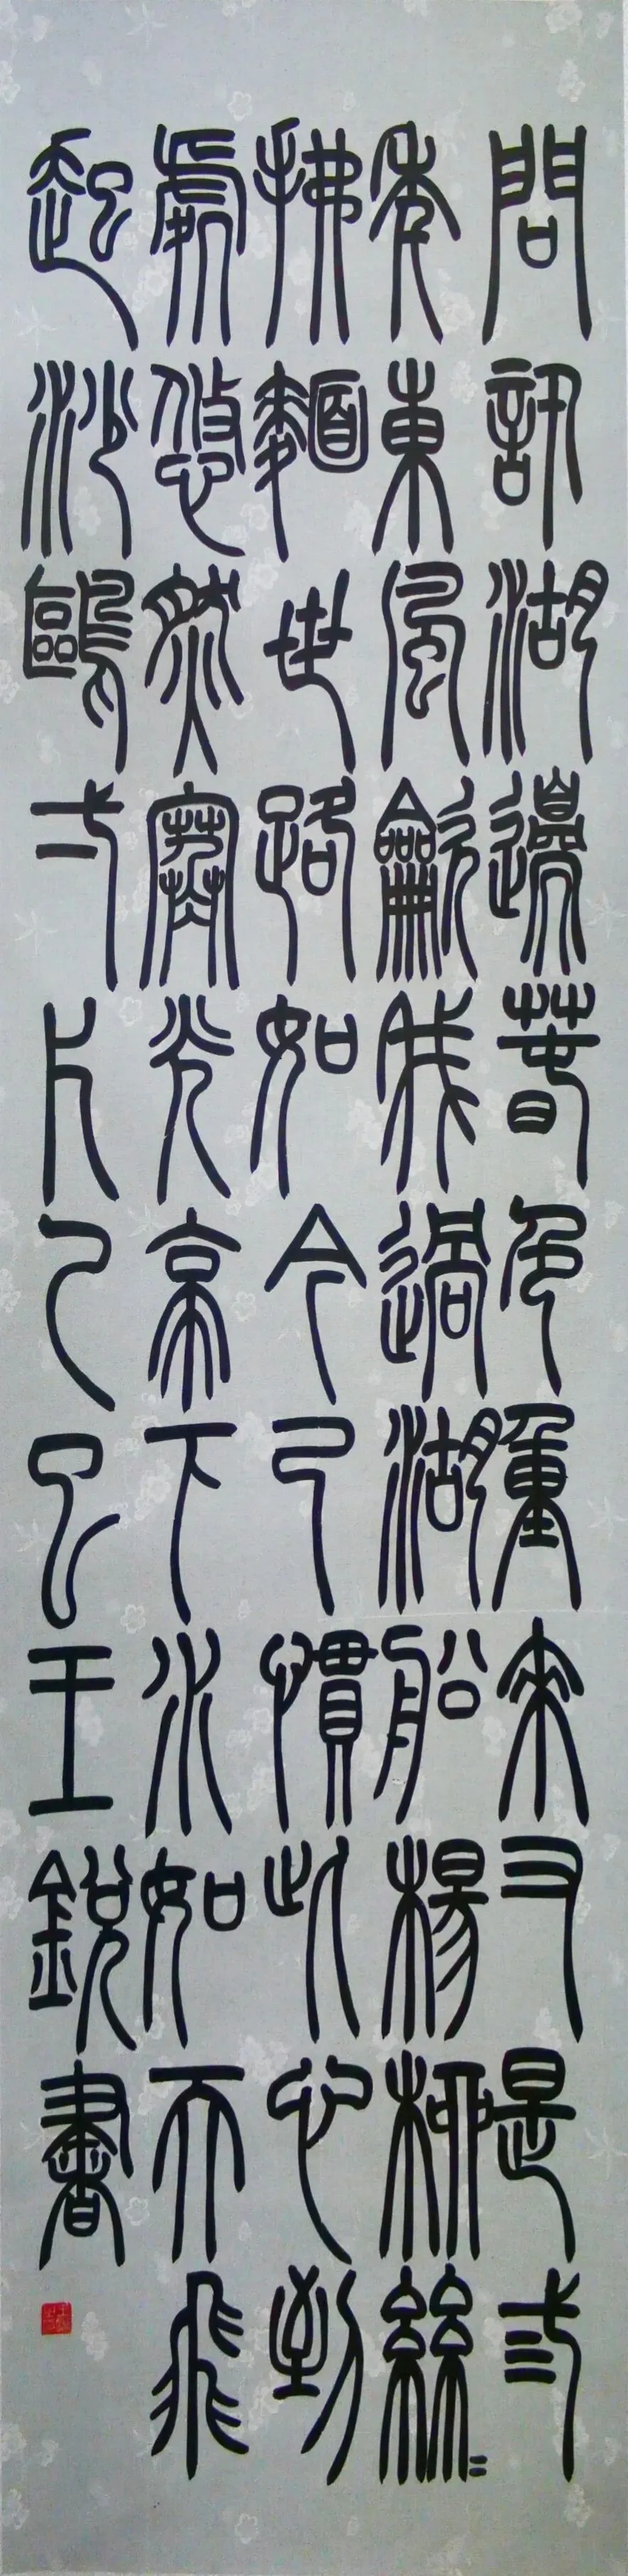 問訊湖邊春色重來又是弎
年東風龡我過湖船楊柳絲=
拂麵世路如今已慣此心到
處悠然寒光亭下水如天飛
起沙鷗弌片乙巳王銳書